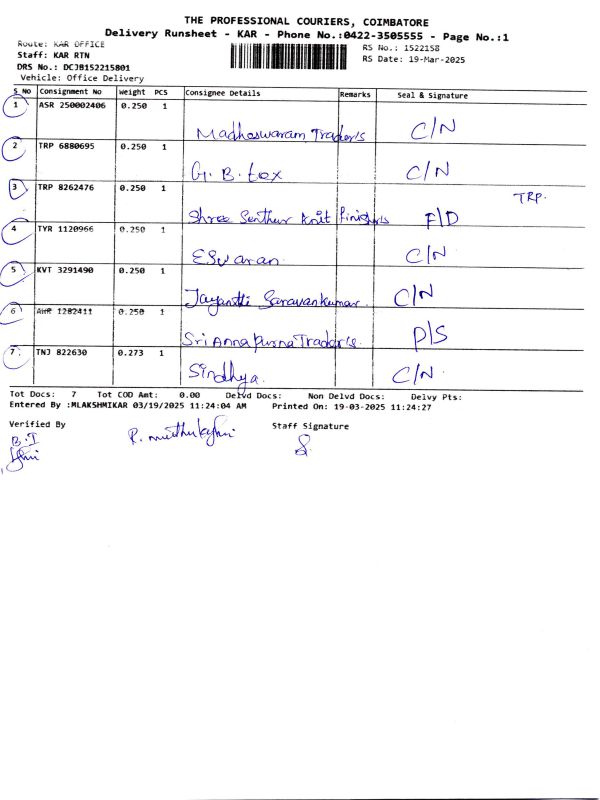 THE PROFESSIONAL COURIERS, COIMBATORE
Delivery Runsheet - KAR - Phone No.:0422-3505555 - Page No.:1
Route: KAR OFFICE
RS No.: 1522158
Staff: KAR RTN
RS Date: 19-Mar-2025
DRS No.: DCJB152215801
Vehicle: Office Delivery
S No Consignment No Weight PCS Consignee Details Remarks Seal & Signature
1 ASR 250002406 0.250 1
Madheswaram Trader's C/N
2 TRP 6880695 0.250 1
G. B. tex C/N
3 TRP 8262476 0.250 1
TRP.
Shree Senthur Knit finisher's F/D
4 TYR 1120966 0.250 1
ESwaran C/N
5 KVT 3291490 0.250 1
Jayanthi Saravankumar. C/N
6 1282411 0.250 1
Sri Anna Purna Trader's. P/S
7 TNJ 822630 0.273 1
Sindhya. C/N
Tot Docs: 7 Tot COD Amt: 0.00 Delvd Docs: Non Delvd Docs: Delvy Pts:
Entered By :MLAKSHMIKAR 03/19/2025 11:24:04 AM Printed On: 19-03-2025 11:24:27
Verified By
Staff Signature
B.I